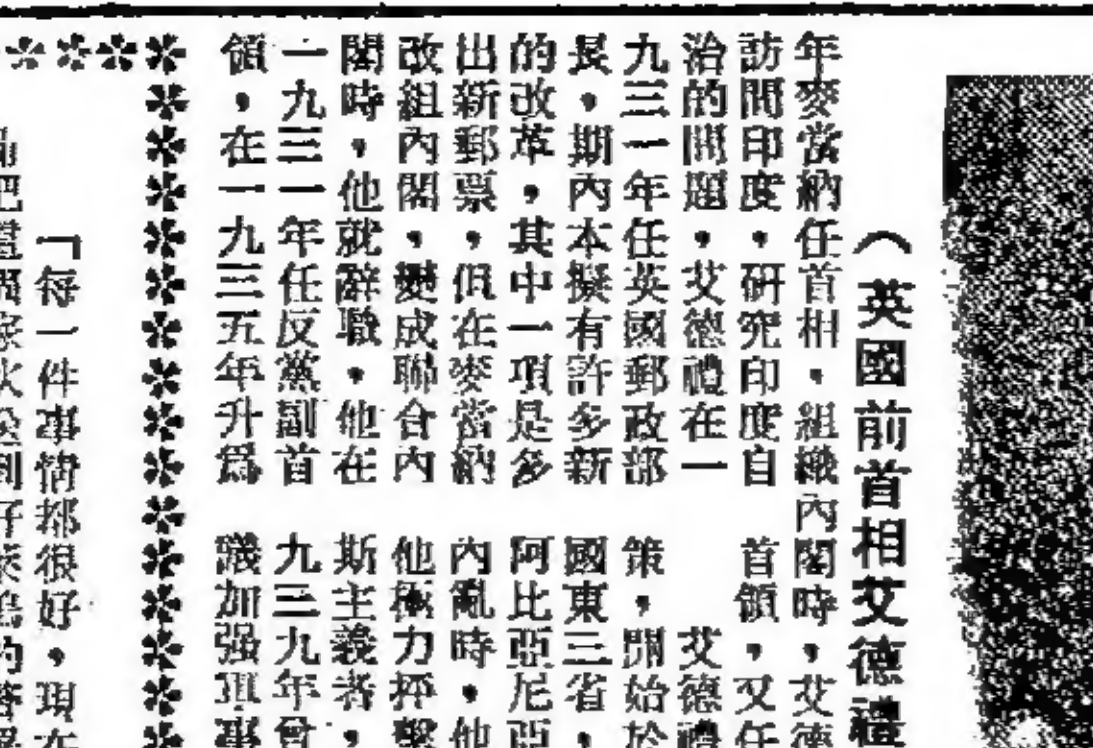 （英國前首相艾德禮
年麥當納任首相，組織內閣時，艾德
訪問印度，研究印度自
治的問題，艾德禮在一
九三一年任英國郵政部
長，期內本擬有許多新
的改革，其中一項是多
出新郵票，但在麥當納
改組內閣，變成聯合內
閣時，他就辭職，他在
一九三一年任反黨副首
領，在一九三五年升爲
首領，又任
艾德禮
策，開始於
國東三省，
阿比亞尼亞
內亂時，他
他極力抨擊
斯主義者，
九三九年曾
議加强軍事
「每一件事情都很好，現在